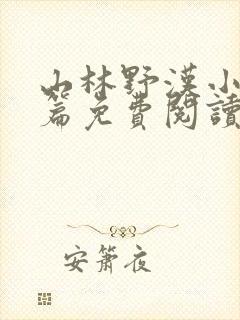 山林野漢小
篇免費閱讀
安簫夜